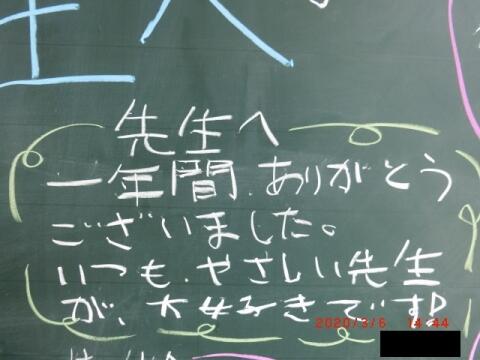 先生へ
一年間、ありがとう
ございました。
いつも、やさしい先生
が、大好きです!
2020/3/6 14:44